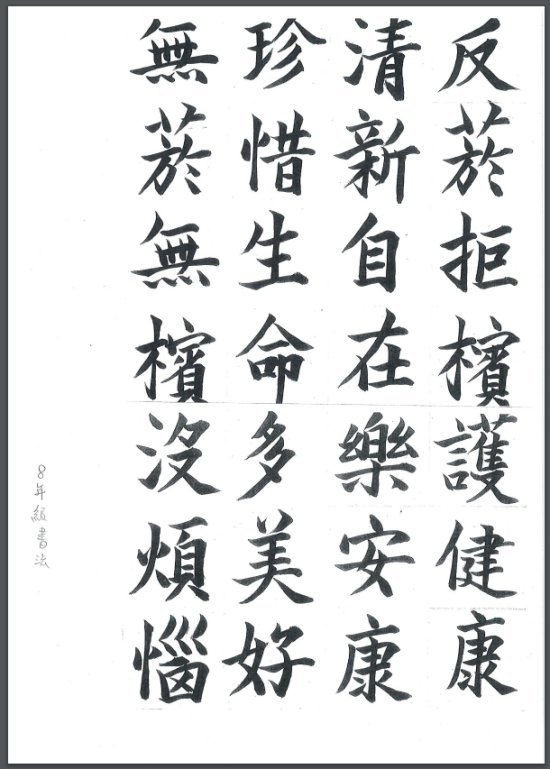 反菸拒檳護健康
清新自在樂安康
珍惜生命多美好
無菸無檳沒煩惱
8年級書法